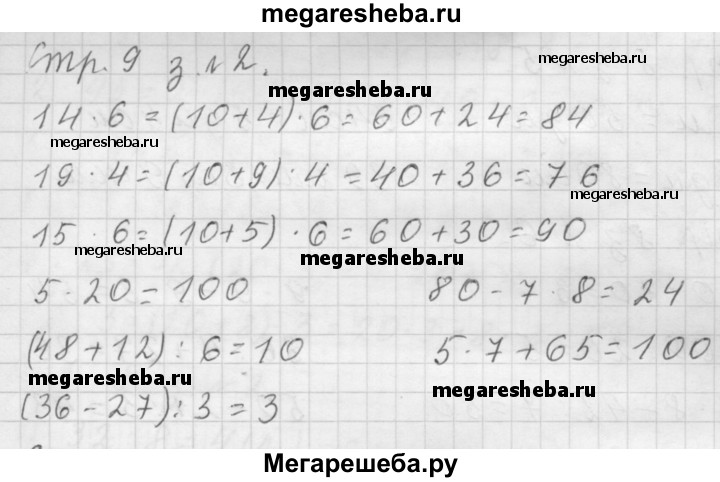 megaresheba.ru
Стр. 9 з. № 2.
megaresheba.ru
megaresheba.ru
14 · 6 = (10+4) · 6 = 60 + 24 = 84
megaresheba.ru
19 · 4 = (10+9) · 4 = 40 + 36 = 76
megaresheba.ru
15 · 6 = (10+5) · 6 = 60 + 30 = 90
megaresheba.ru
megaresheba.ru
5 · 20 = 100 80 - 7 · 8 = 24
(48 + 12) : 6 = 10 5 · 7 + 65 = 100
megaresheba.ru
megaresheba.ru
(36 - 27) : 3 = 3
Мегарешеба.ру